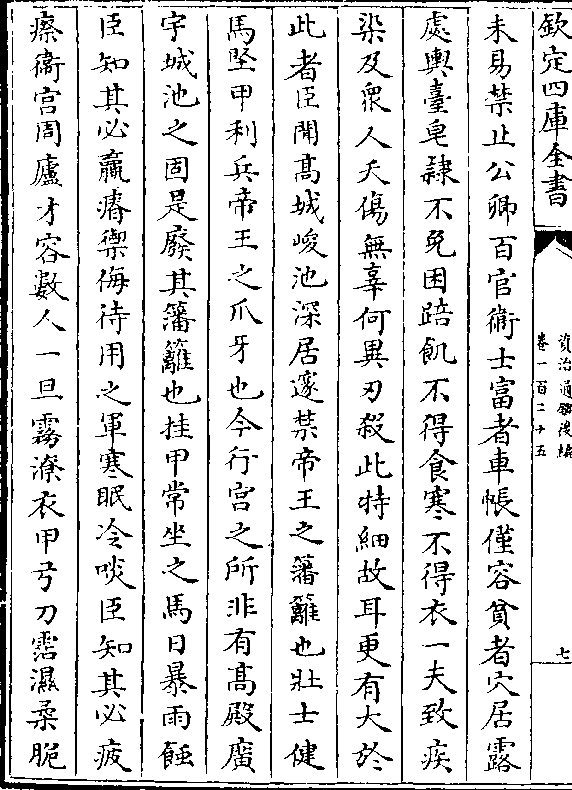 欽定四庫全書
資治通鑑後編
卷一百二十五
七
未易禁止公卿百官衛士富者車帳僅容貧者穴居露
處輿臺皂隸不免困踣飢不得食寒不得衣一夫致疾
染及衆人夭傷無辜何異刃殺此特細故耳更有大於
此者臣聞髙城峻池深居邃禁帝王之藩籬也壯士健
馬堅甲利兵帝王之爪牙也今行宫之所非有髙殿廣
宇城池之固是廢其藩籬也挂甲常坐之馬日暴雨蝕
臣知其必羸瘠禦侮待用之軍寒眠冷啖臣知其必疲
瘵衞宫周廬才容數人一旦霧潦衣甲弓刀霑濕柔脆